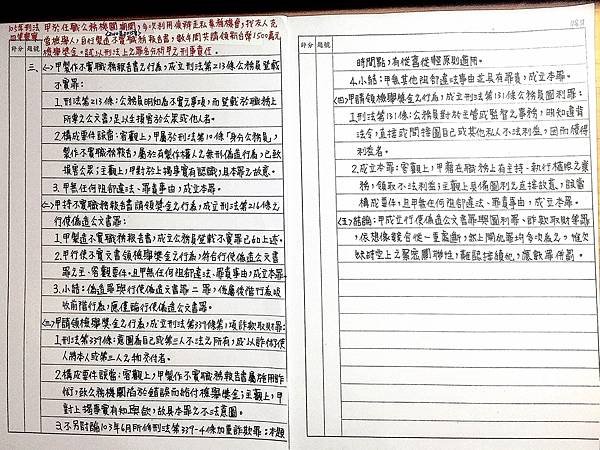 105年刑法 甲於任職公務機關期間,多次利用偵辦走私案務機會,找友人充
當檢舉人,自行製造不實職務報告書,數年間共請領新台幣1500萬元
檢舉獎金。試以刑法上之罪名分析甲之刑事責任。
評分 題號
三、 <一>甲製作不實職務報告書之行為,成立刑法第213條公務員登載
不實罪:
1.刑法第213條:公務員明知為不實之事項,而登載於職務上
所掌之公文書,足以生損害於公眾或他人。
2.構成要件該當:客觀上,甲屬於刑法第10條「身分公務員」,
製作不實職務報告書,屬於有製作權人之無形偽造行為,已致
損害公眾;主觀上,甲對於上揭事實有認識,具本罪之故意。
3.甲無任何阻卻違法、罪責事由,成立本罪。
<二>甲持不實職務報告書請領獎金之行為,成立刑法第216條之
行使偽造公文書罪:
1.甲製造不實職務報告書,成立公務員登載不實罪已如上述。
2.甲行使不實文書領檢舉獎金之行為,符合行使偽造公文書
罪之主、客觀要件。且甲無任何阻卻違法、罪責事由,成立本罪。
3.小結:偽造罪與行使偽造文書罪二罪,係屬後階行為吸
收前階行為,應僅論行使偽造公文書罪。
<三>甲請領檢舉獎金之行為,成立刑法第339條第1項詐欺取財罪:
1.刑法第339條:意圖為自己或第三人不法之所有,或以詐術使
人將本人或第三人之物交付者。
2.構成要件該當:客觀上,甲製作不實職務報告書屬施用詐
術,致公務機關陷於錯誤而給付檢舉獎金;主觀上,甲
對上揭事實有知與欲,故具本罪之不法意圖。
3.不另討論103年6月所修刑法第339-4條加重詐欺罪:本題
評分 題號
時間點,有從舊從輕原則適用。
4.小結:甲無其他阻卻違法事由並具有罪責,成立本罪。
<四>甲請領檢舉獎金之行為,成立刑法第131條公務員圖利罪:
1.刑法第131條:公務員對於主管或監督之事務,明知違背
法令,直接或間接圖自己或其他私人不法利益,因而獲得
利益者。
2.成立本罪:客觀上,甲藉在職務上有主持、執行權限之業
務,領取不法利益;主觀上具備圖利之直接故意,該當
構成要件,且無任何阻卻違法、罪責事由,成立本罪。
<五>結論:甲成立行使偽造公文書罪與圖利罪、詐欺取財罪等罪
,依想像競合從一重處斷,